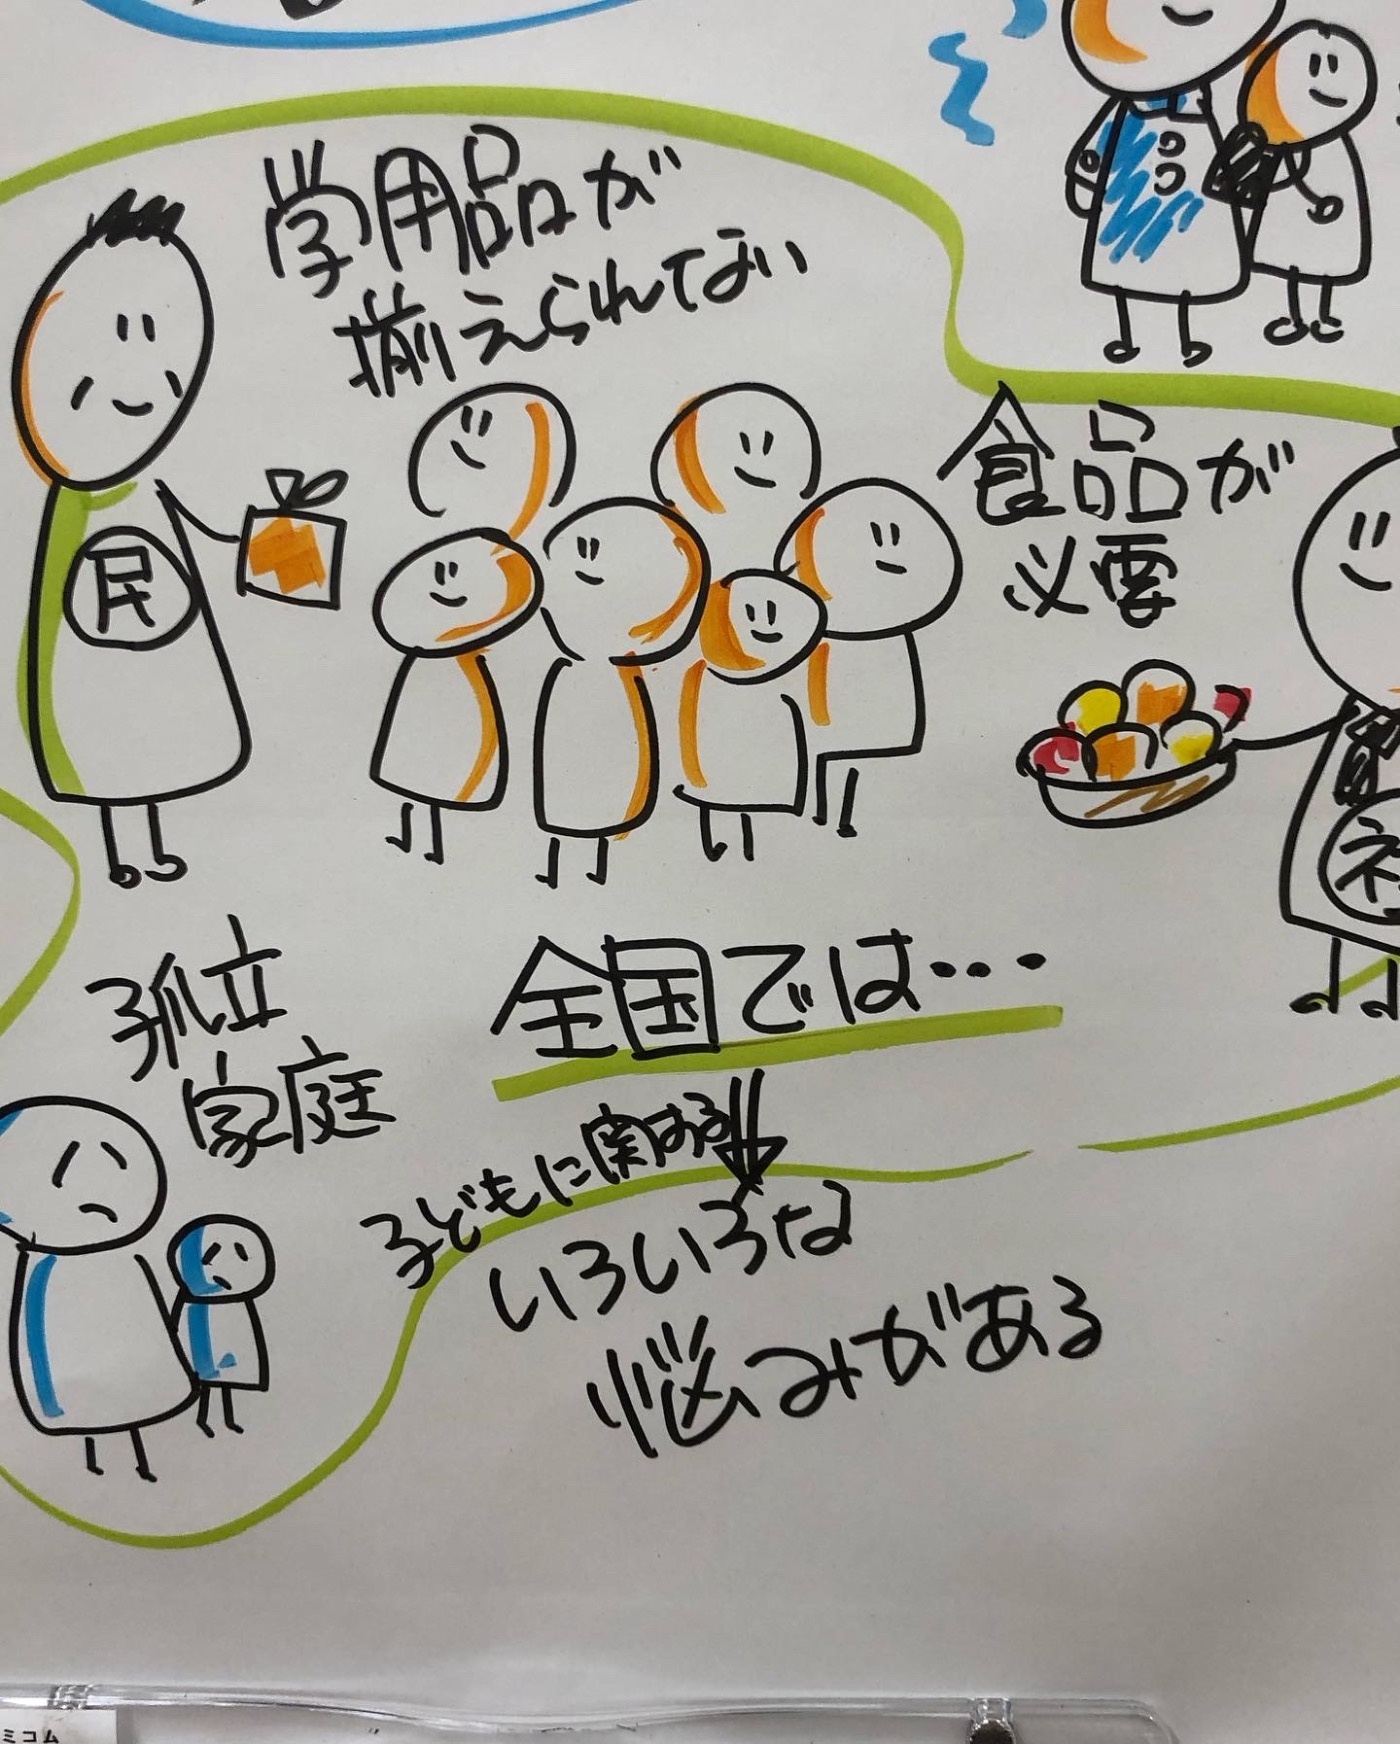 学用品が
揃えられてない
民
食品が
必要
社
孤立
家庭
全国では…
子どもに関する
いろいろな
悩みがある
ミコム